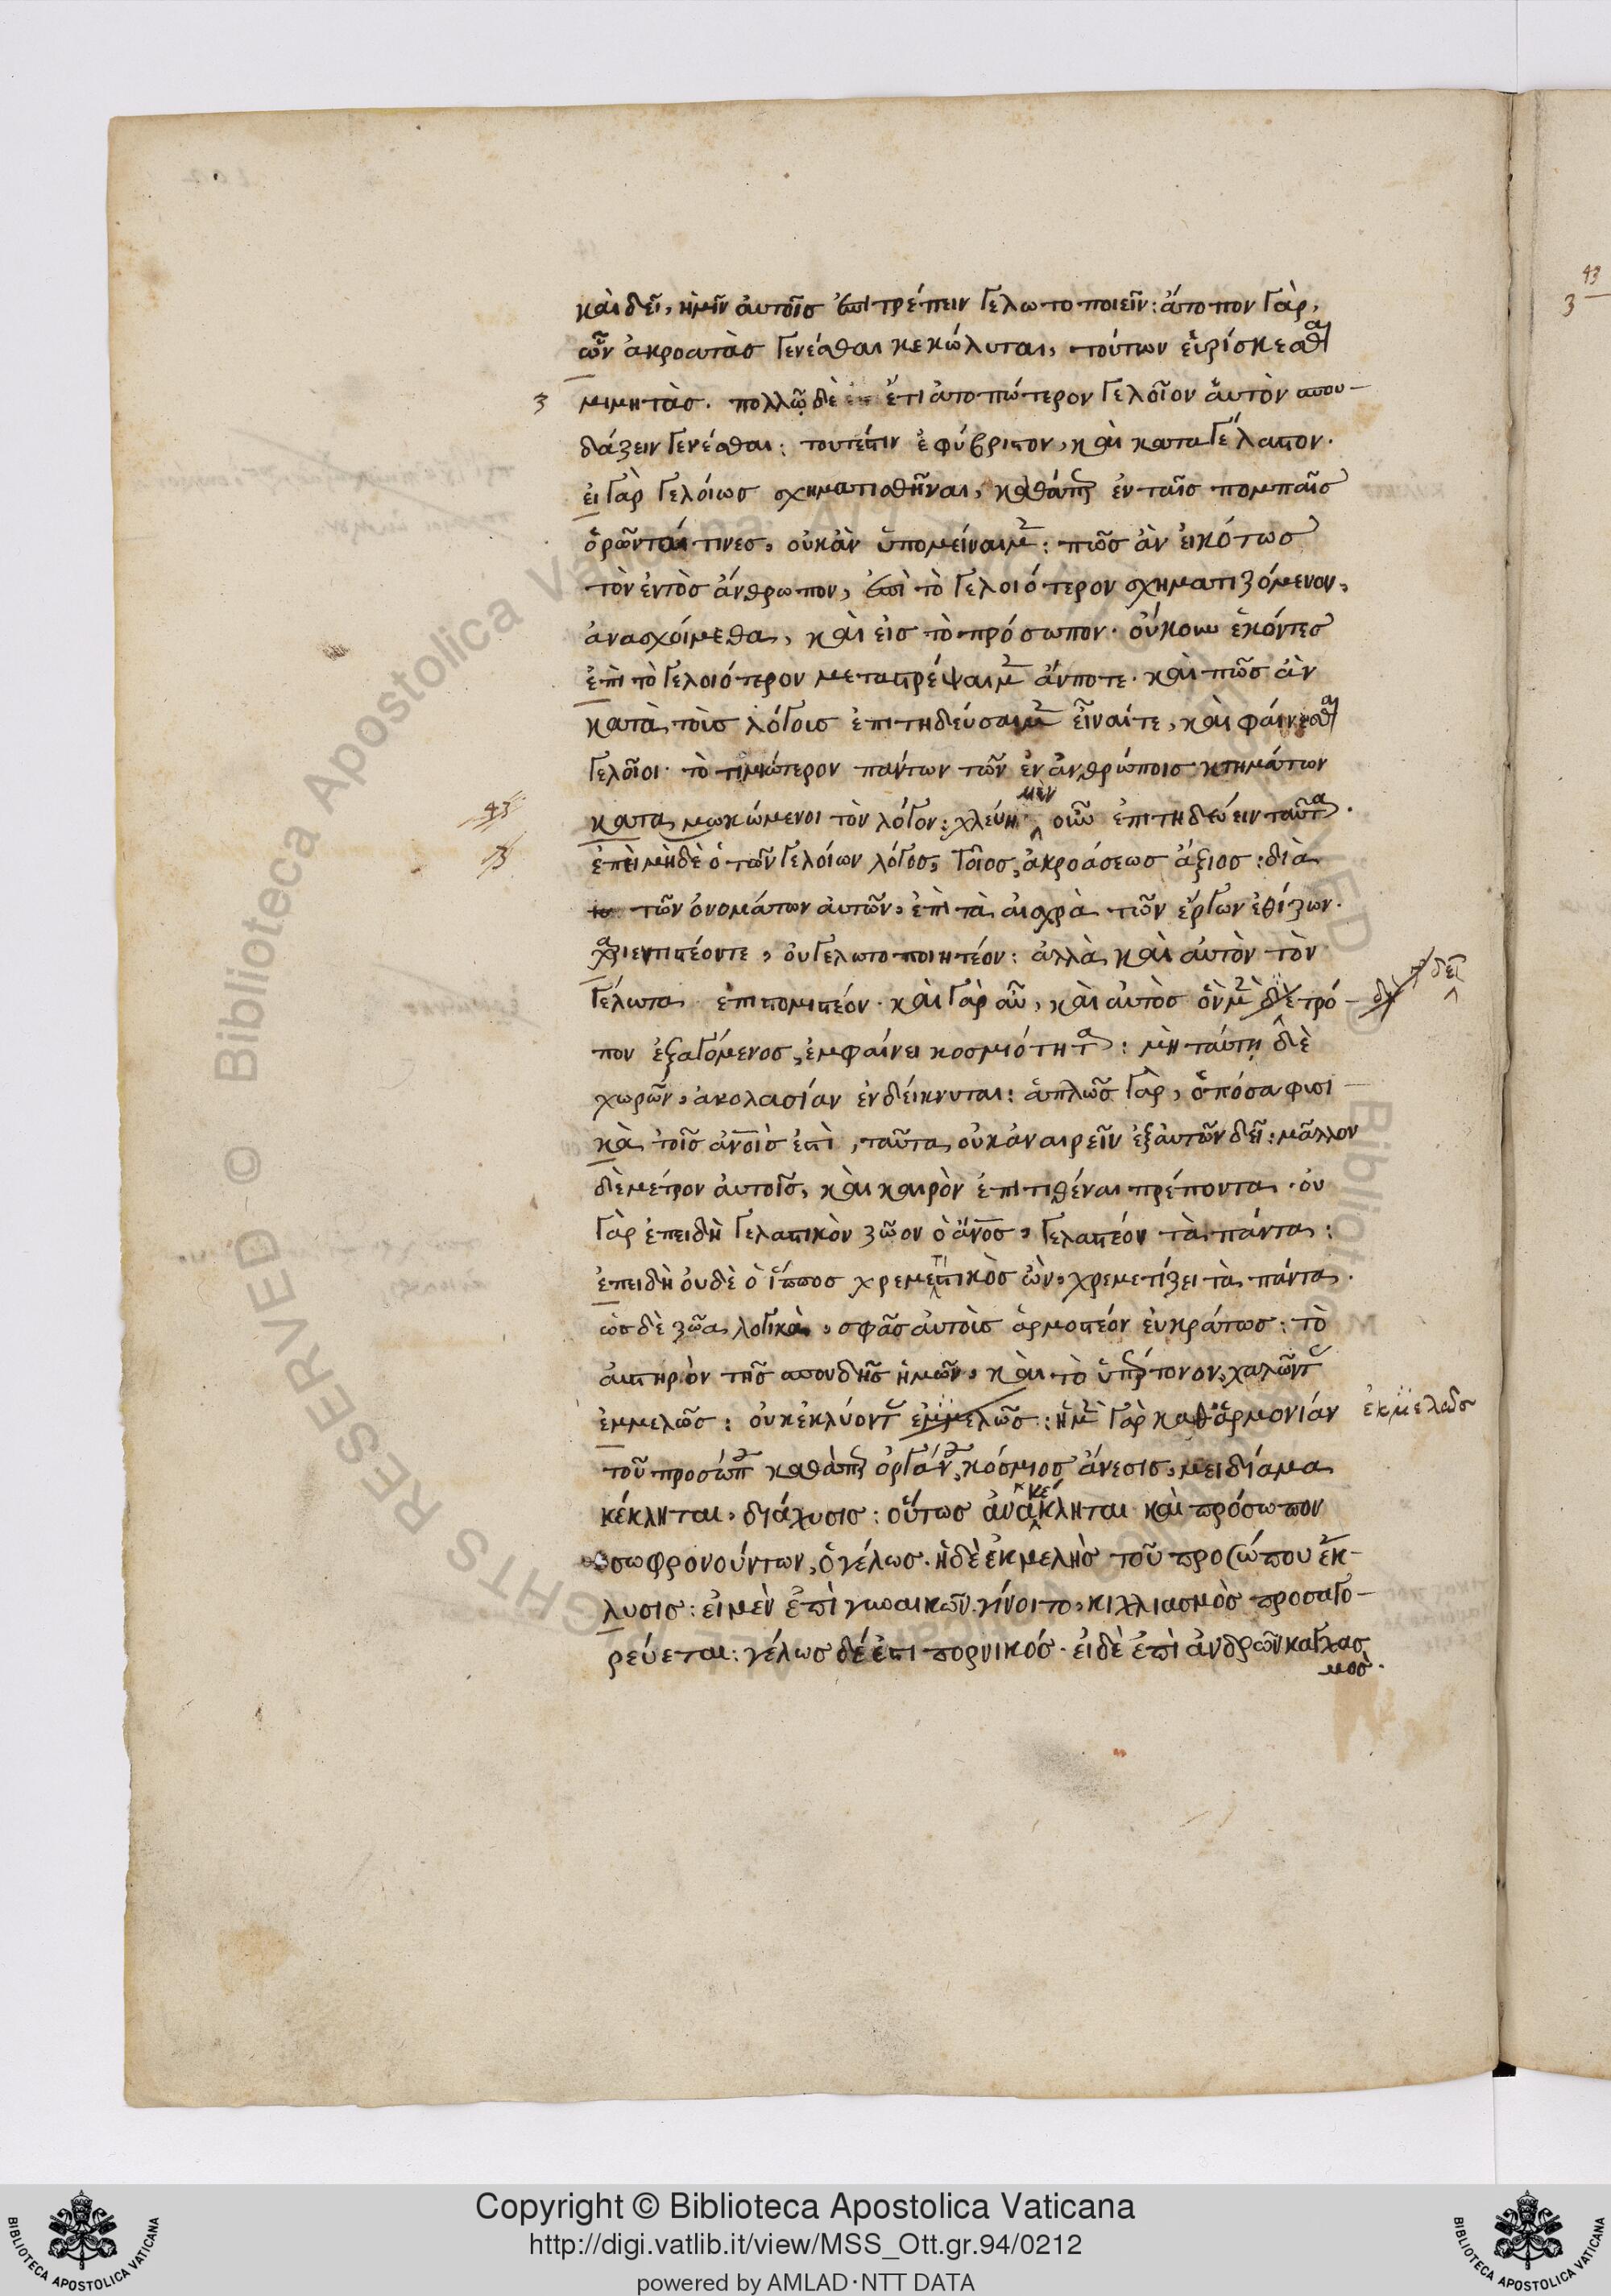 καὶ δεῖ, ἡμῖν αὐτοῖς ἐπιτρέπειν γελωτοποιεῖν: ἄτοπον γὰρ,
ὧν ἀκροατὰς γενέσθαι κεκώλυται, τούτων εὑρίσκεσθαι
3 μιμητάς. πολλῷ δὲ ἔτι ἀτοπώτερον γελοῖον αὑτὸν σπου-
δάζειν γενέσθαι: τουτέστιν ἐφύβριστον, καὶ καταγέλαστον.
εἰ γὰρ γελοίως σχηματισθῆναι, καθάπερ ἐν ταῖς πομπαῖς
ὁρῶνταί τινες, οὐκ ἂν ὑπομείναιμεν: πῶς ἂν εἰκότως
τὸν ἐντὸς ἄνθρωπον, ἐπὶ τὸ γελοιότερον σχηματιζόμενον,
ἀνασχοίμεθα, καὶ εἰς τὸ πρόσωπον. οὔκουν ἑκόντες
ἐπὶ τὸ γελοιότερον μεταστρέψαιμεν ἄν ποτε. καὶ πῶς ἂν
κατὰ τοὶς λόγοις ἐπιτηδεύσαιμεν εἶναί τε, καὶ φαίνεσθαι
γελοῖοι. τὸ τιμιώτερον πάντων τῶν ἐν ἀνθρώποις κτημάτων
43 καταμωκώμενοι τὸν λόγον: χλεύη μὲν οὖν ἐπιτηδεύειν ταῦτα.
ἐπεὶ μηδὲ ὁ τῶν γελοίων λόγος, γοῖος, ἀκροάσεως ἄξιος: διὰ
τῶν ὀνομάτων αὐτῶν, ἐπὶ τὰ αἰσχρὰ τῶν ἔργων ἐθίζων.
χαριεντιστέον τε, οὐ γελωτοποιητέον: ἀλλὰ καὶ αὐτὸν τὸν
γέλωτα ἐπιστομιστέον. καὶ γὰρ αὖ, καὶ αὐτὸς ὃν μὲν δὲ τρό- δεῖ
πον ἐξαγόμενος, ἐμφαίνει κοσμιότητα: μὴ ταύτῃ δὲ
χωρῶν, ἀκολασίαν ἐνδείκνυται: ἁπλῶς γὰρ, ὁπόσα φυσι-
κὰ τοῖς ἀνοις ἐστὶ, ταῦτα οὐκ ἀναιρεῖν ἐξ αὐτῶν δεῖ: μᾶλλον
δὲ μέτρον αὐτοῖς, καὶ καιρὸν ἐπιτιθέναι πρέποντα. οὐ
γὰρ ἐπειδὴ γελαστικὸν ζῶον ὁ ἄνος, γελαστέον τὰ πάντα:
ἐπειδὴ οὐδὲ ὁ ἵππος χρεμετιστικὸς ὢν, χρεμετίζει τὰ πάντα.
ὡς δὲ ζῶα λογικὰ, σφᾶς αὐτοὶς ἁρμοστέον εὐκράτως: τὸ
αὐστηρὸν τῆς σπουδῆς ἡμῶν, καὶ τὸ ὑπέρτονον, χαλῶντας
ἐμμελῶς: οὐκ ἐκλύοντας ἐμμελῶς: ἡ μὲν γὰρ καθ' ἁρμονίαν ἐκμελῶς
τοῦ προσώπου καθάπερ ὀργάνου, κόσμιος ἄνεσις, μειδίαμα
κέκληται, διάχυσις: οὕτως ἀνακέκληται καὶ πρόσωπον
σωφρονούντων, ὁ γέλως. ἡ δὲ ἐκμελὴς τοῦ προσώπου ἔκ-
λυσις: εἰ μὲν ἐπὶ γυναικῶν γίνοιτο, κιχλιασμὸς προσαγο-
ρεύεται: γέλως δέ ἐστι πορνικός. εἰ δὲ ἐπὶ ἀνδρῶν καγχας
μός.
43
3
Copyright © Biblioteca Apostolica Vaticana
http://digi.vatlib.it/view/MSS_Ott.gr.94/0212
powered by AMLAD·NTT DATA
BIBLIOTECA APOSTOLICA VATICANA
BIBLIOTECA APOSTOLICA VATICANA